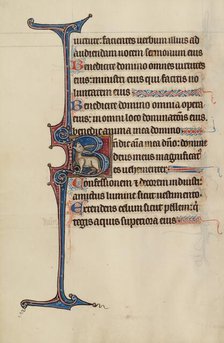 uirtute: facientes uerbum illius ad
audiendam uocem sermonum eius
Benedicite domino omnes uirtutes
eius: ministri eius qui facitis uo
luntatem eius
Benedicite domino omnia opera
eius: in omni loco dominationis eius
benedic anima mea domino
Benedic anima mea dño: domine
deus meus magnificat
es uehementer
Confessionem & decorem induisti:
amictus lumine sicut uestimento
Extendens celum sicut pellem: q
tegis aquis superiora eius